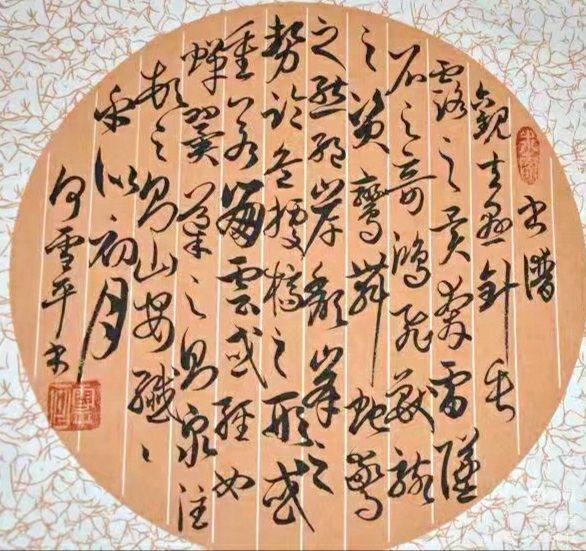 书谱
觀夫悬針垂
露之異奔雷墜
石之奇鴻飛獸駭
之資鸞舞蛇驚
之態絕岸頹峯之
勢臨危據槁之形或
重若崩雲或輕如
蟬翼導之則泉注
頓之則山安纖纖
乎似初月
何雪平书